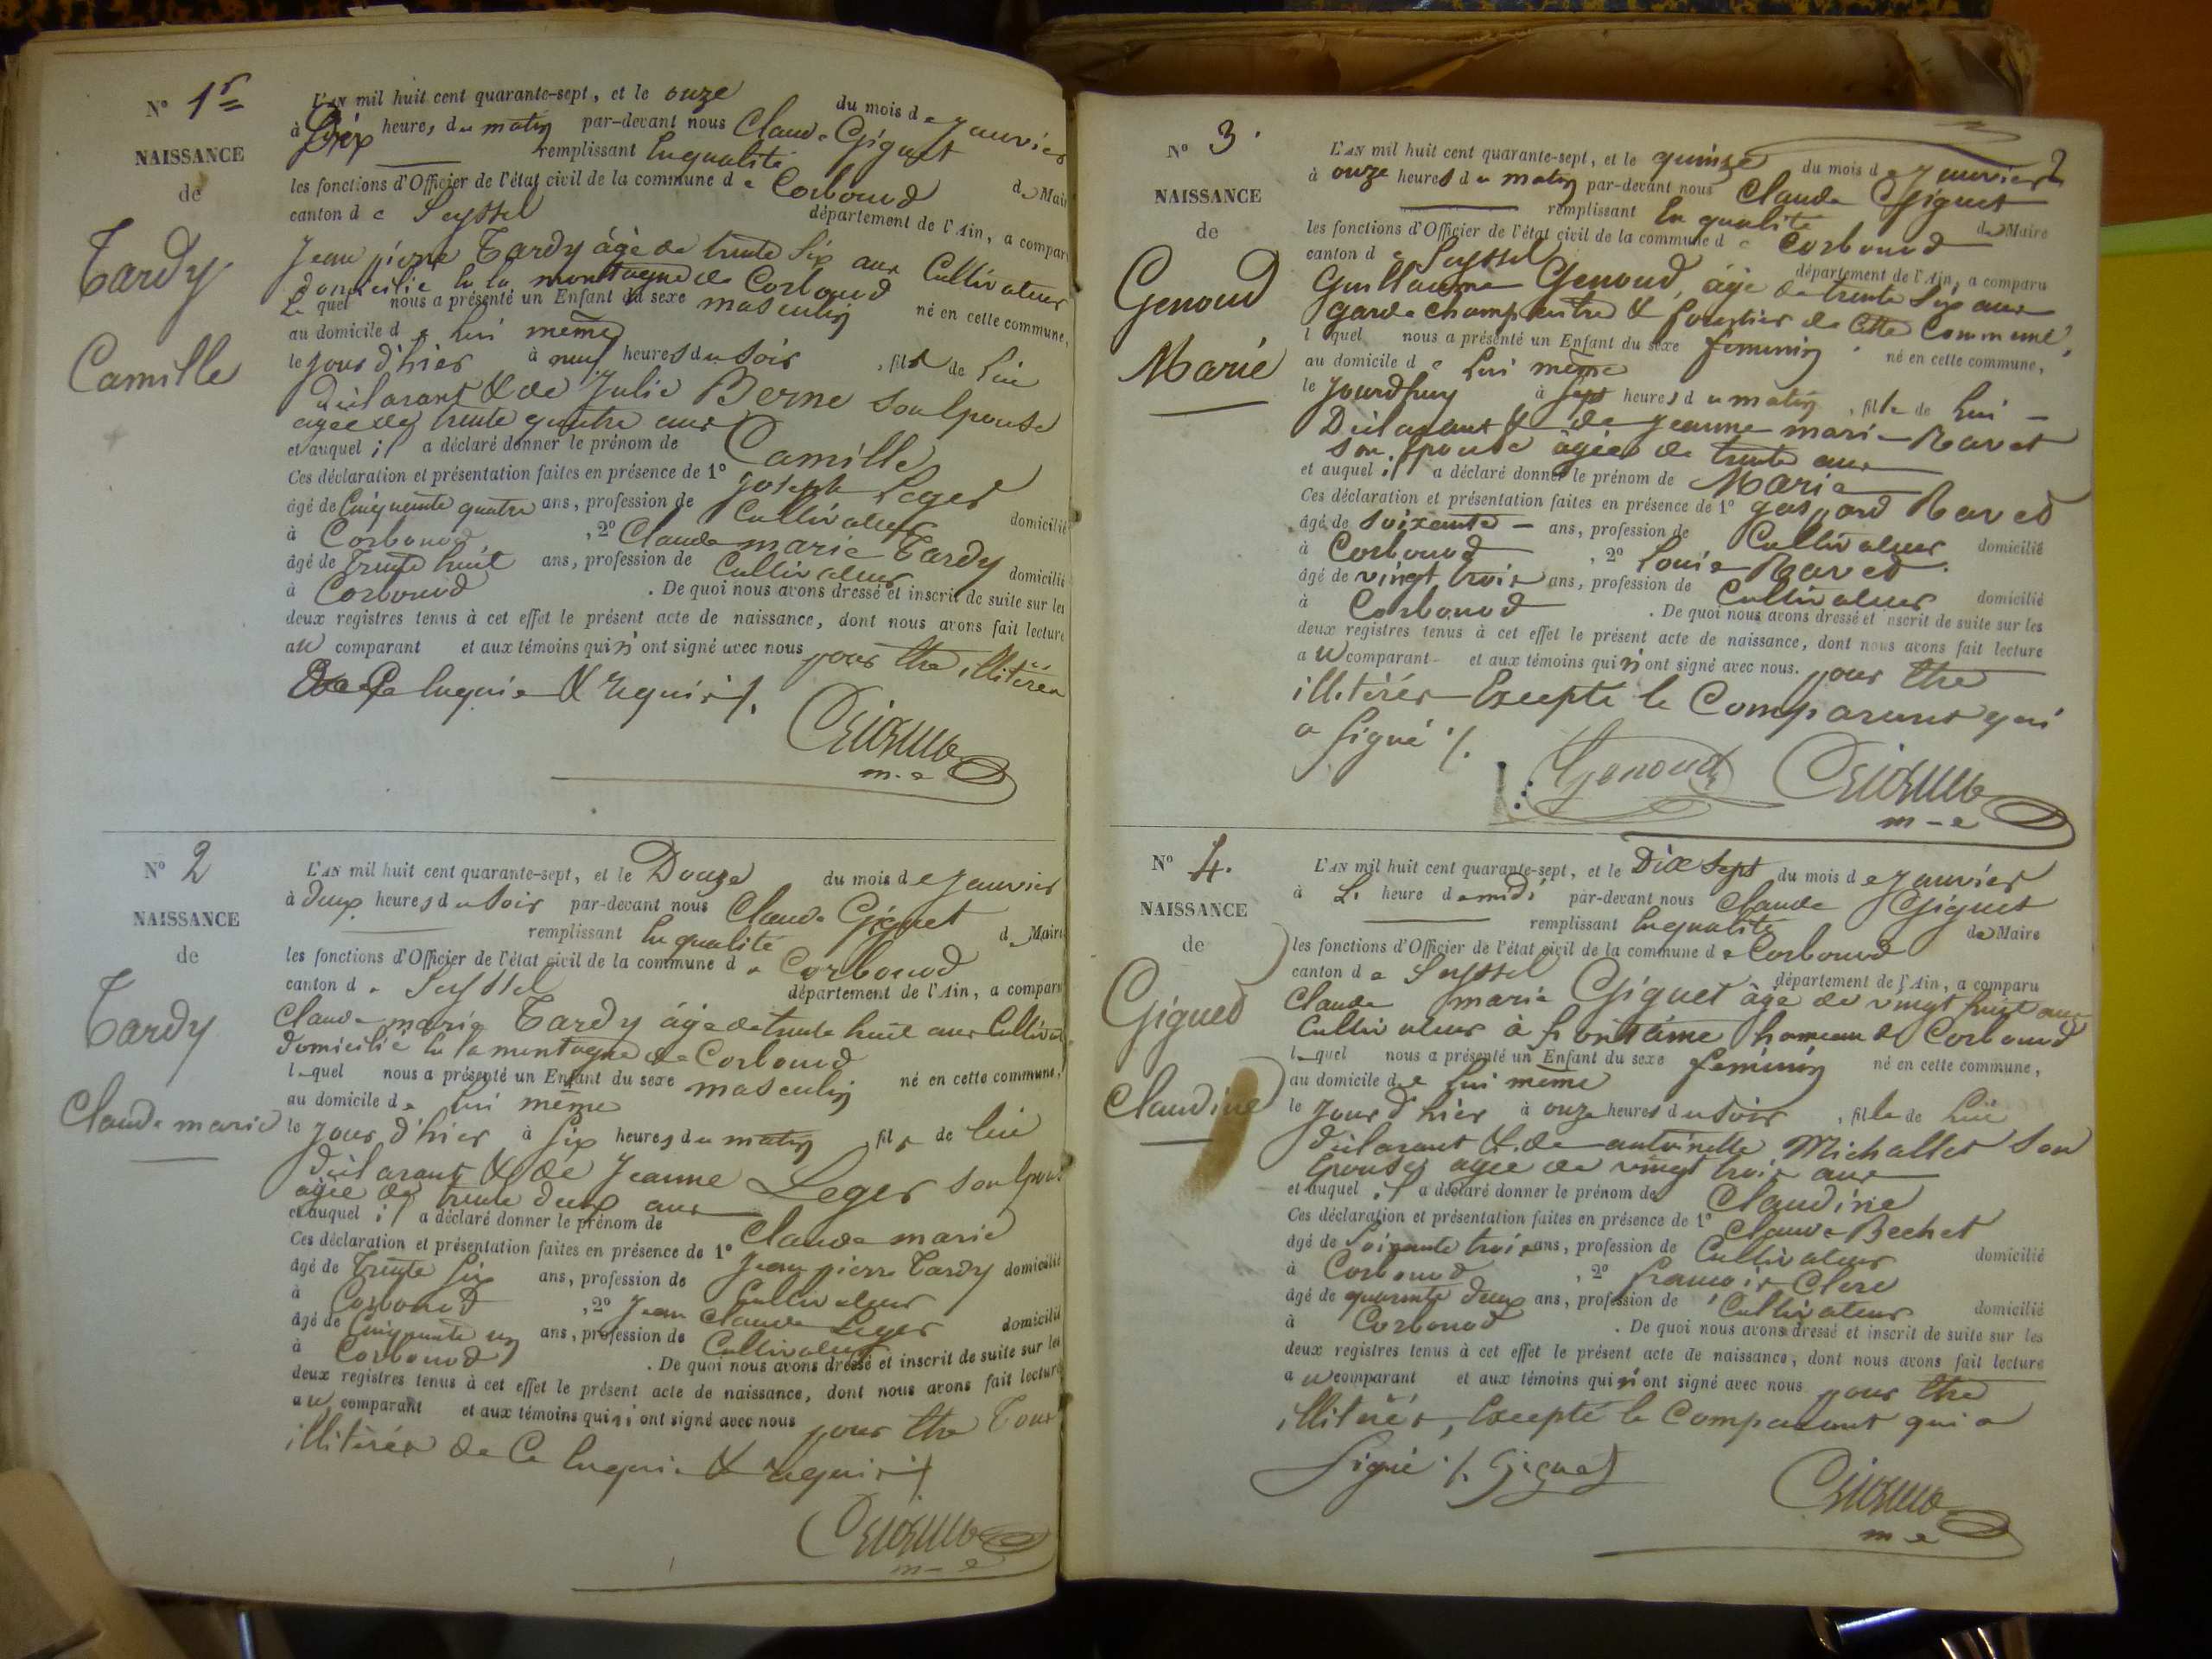 N° 1r
NAISSANCE
de
Tardy
Camille
L'AN mil huit cent quarante-sept, et le onze du mois de janvier
à dix heures du matin par-devant nous Claude Giguet
remplissant en qualité de Maire
les fonctions d'Officier de l'état civil de la commune de Corbonod
canton de Seyssel département de l'Ain, a comparu
Jean pierre Tardy âgé de trente six ans Cultivateur
domicilié à la montagne de Corbonod
Lequel nous a présenté un Enfant du sexe masculin né en cette commune,
au domicile de lui même
le jour d'hier à neuf heures du soir, fils de lui
déclarant & de Julie Berne son épouse
agée de trente quatre ans
et auquel il a déclaré donner le prénom de Camille
Ces déclaration et présentation faites en présence de 1° joseph Leger
âgé de Cinquante quatre ans, profession de Cultivateur domicilié
à Corbonod, 2° Claude marie Tardy
âgé de Trente huit ans, profession de Cultivateur domicilié
à Corbonod. De quoi nous avons dressé et inscrit de suite sur les
deux registres tenus à cet effet le présent acte de naissance, dont nous avons fait lecture
au comparant et aux témoins qui n'ont signé avec nous pour être illitérés
de Ce enquis & requis /.
m-e
N° 2
NAISSANCE
de
Tardy
Claude marie
L'AN mil huit cent quarante-sept, et le Douze du mois de janvier
à deux heures du soir par-devant nous Claude Giguet
remplissant en qualité de Maire
les fonctions d'Officier de l'état civil de la commune de Corbonod
canton de Seyssel département de l'Ain, a comparu
Claude marie Tardy âgé de trente huit ans Cultivat
domicilié à la montagne de Corbonod
lequel nous a présenté un Enfant du sexe masculin né en cette commune,
au domicile de lui même
le jour d'hier à six heures du matin fils de lui
déclarant & de Jeanne Leger son épouse
agée de trente deux ans
et auquel il a déclaré donner le prénom de Claude marie
Ces déclaration et présentation faites en présence de 1° Jean pierre Tardy
âgé de Trente six ans, profession de Cultivateur domicilié
à Corbonod, 2° Jean Claude Leger
âgé de Cinquante un ans, profession de Cultivateur domicilié
à Corbonod. De quoi nous avons dressé et inscrit de suite sur les
deux registres tenus à cet effet le présent acte de naissance, dont nous avons fait lecture
au comparant et aux témoins qui n'ont signé avec nous pour être Tous
illitérés de Ce enquis & requis /
m-e
N° 3.
NAISSANCE
de
Genoud
Marie
L'AN mil huit cent quarante-sept, et le quinze du mois de janvier
à onze heures du matin par-devant nous Claude Giguet
remplissant en qualité de Maire
les fonctions d'Officier de l'état civil de la commune de Corbonod
canton de Seyssel département de l'Ain, a comparu
Guillaume Genoud, âgé de trente six ans
garde champêtre & forestier de Cette Commune,
lequel nous a présenté un Enfant du sexe féminin né en cette commune,
au domicile de lui même
le jourdhuy à sept heures du matin, fille de lui -
Déclarant & de jeanne marie Ravet
son épouse âgée de trente ans
et auquel il a déclaré donner le prénom de Marie
Ces déclaration et présentation faites en présence de 1° gaspard Ravet
âgé de soixante - ans, profession de Cultivateur domicilié
à Corbonod, 2° Louis Ravet.
âgé de vingt trois ans, profession de Cultivateur domicilié
à Corbonod. De quoi nous avons dressé et inscrit de suite sur les
deux registres tenus à cet effet le présent acte de naissance, dont nous avons fait lecture
au comparant et aux témoins qui n'ont signé avec nous. pour être
illitérés Excepté le Comparant qui
a signé /.
Genoud
m-e
N° 4.
NAISSANCE
de
Giguet
Claudine
L'AN mil huit cent quarante-sept, et le Dix sept du mois de janvier
à L. heure de midi par-devant nous Claude Giguet
remplissant en qualité de Maire
les fonctions d'Officier de l'état civil de la commune de Corbonod
canton de Seyssel département de l'Ain, a comparu
Claude marie Giguet âgé de vingt huit ans
Cultivateur à hameau de Corbonod
lequel nous a présenté un Enfant du sexe féminin né en cette commune,
au domicile de lui même
le jour d'hier à onze heures du soir, fille de lui
déclarant & de antoinette Michallet son
épouse agée de vingt trois ans
et auquel il a déclaré donner le prénom de Claudine
Ces déclaration et présentation faites en présence de 1° Claude Bechet
âgé de Soixante trois ans, profession de Cultivateur domicilié
à Corbonod, 2° françois Clerc
âgé de quarante deux ans, profession de Cultivateur domicilié
à Corbonod. De quoi nous avons dressé et inscrit de suite sur les
deux registres tenus à cet effet le présent acte de naissance, dont nous avons fait lecture
au comparant et aux témoins qui n'ont signé avec nous pour être
illitérés, Excepté le Comparant qui a
signé /. Giguet
m-e